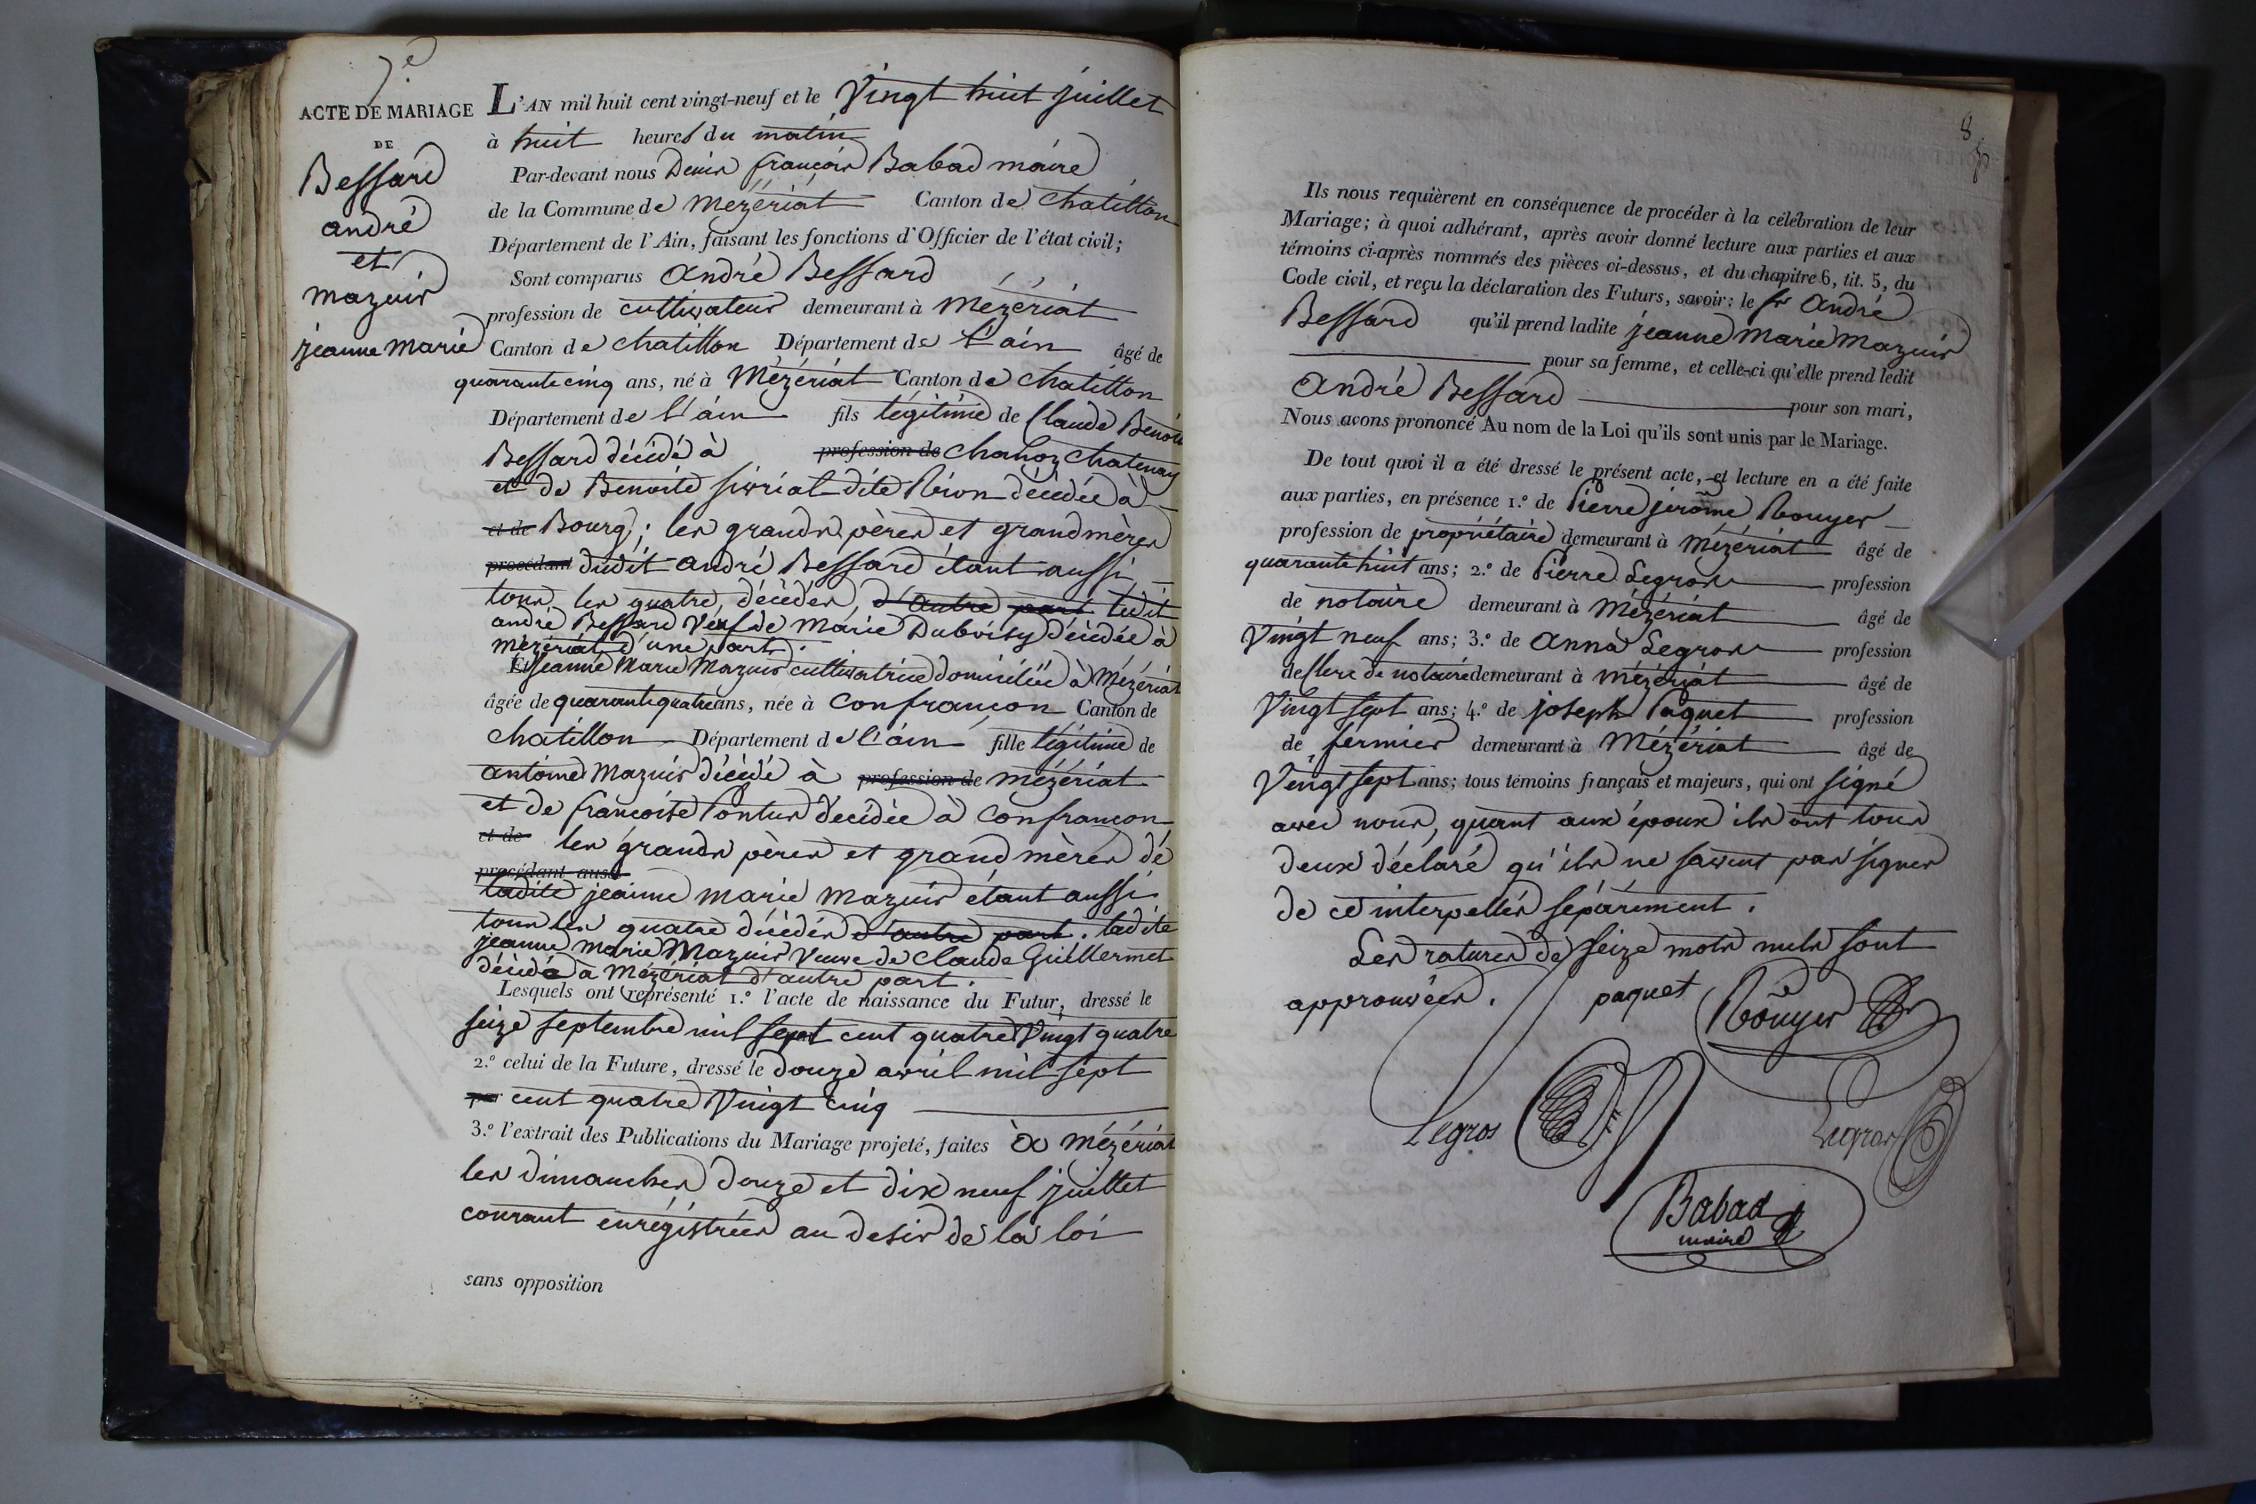 7e
ACTE DE MARIAGE
DE
Bessard
andré
et
mazuir
jeanne Marie
L'AN mil huit cent vingt-neuf et le Vingt huit juillet
à huit heures du matin
Par-devant nous Denis françois Babad maire
de la Commune de Mézériat Canton de chatillon
Département de l'Ain, faisant les fonctions d'Officier de l'état civil;
Sont comparus andré Bessard
profession de cultivateur demeurant à Mézériat
Canton de chatillon Département de l'ain âgé de
quarante cinq ans, né à Mézériat Canton de chatillon
Département de l'ain fils légitime de Claude Benoit
Bessard décédé à profession de chanoz chatenay
et de Benoite sivriat dite Rion décédée à
et de Bourg; les grands pères et grandmères
procédant dudit andré Bessard étant aussi
tous les quatre décédés, d'autre part ledit
andré Bessard Veuf de Marie Duboisy décédée à
mézériat d'une part.
Et jeanne Marie Mazuir cultivatrice domiciliée à Mézériat
âgée de quarante quatre ans, née à Confrançon Canton de
chatillon Département de l'ain fille légitime de
antoine Mazuir décédé à profession de mézériat
et de françoise Pontus décédée à Confrançon
et de les grands pères et grand mères de
procédant aussi
ladite jeanne marie mazuir étant aussi
tous les quatre décédés d'autre part. ladite
jeanne Marie Mazuir Veuve de Claude Guillermet
décédé a Mézériat d'autre part.
Lesquels ont représenté 1.º l'acte de naissance du Futur, dressé le
seize septembre mil sept cent quatre Vingt quatre
2.º celui de la Future, dressé le douze avril mil sept
cent quatre Vingt cinq
3.º l'extrait des Publications du Mariage projeté, faites à Mézériat
les dimanches douze et dix neuf juillet
courant enrégistrées au desir de la loi
sans opposition
8
Ils nous requièrent en conséquence de procéder à la célébration de leur
Mariage; à quoi adhérant, après avoir donné lecture aux parties et aux
témoins ci-après nommés des pièces ci-dessus, et du chapitre 6, tit. 5, du
Code civil, et reçu la déclaration des Futurs, savoir: le sr André
Bessard qu'il prend ladite jeanne Marie Mazuir
pour sa femme, et celle-ci qu'elle prend ledit
André Bessard pour son mari,
Nous avons prononcé Au nom de la Loi qu'ils sont unis par le Mariage.
De tout quoi il a été dressé le présent acte, et lecture en a été faite
aux parties, en présence 1.º de Pierre jerome Rouyer
profession de propriétaire demeurant à Mézériat âgé de
quarante huit ans; 2.º de Pierre Legros profession
de notaire demeurant à Mézériat âgé de
Vingt neuf ans; 3.º de anna Legros profession
de clerc de notaire demeurant à mézériat âgé de
Vingt sept ans; 4.º de joseph Paquet profession
de fermier demeurant à Mézériat âgé de
Vingt sept ans; tous témoins français et majeurs, qui ont signé
avec nous, quant aux époux ils ont tous
deux déclaré qu'ils ne savent pas signer
de ce interpellés séparément.
Les ratures de seize mots nuls sont
approuvées. paquet Rouyer
Legros Legros
Babad
maire